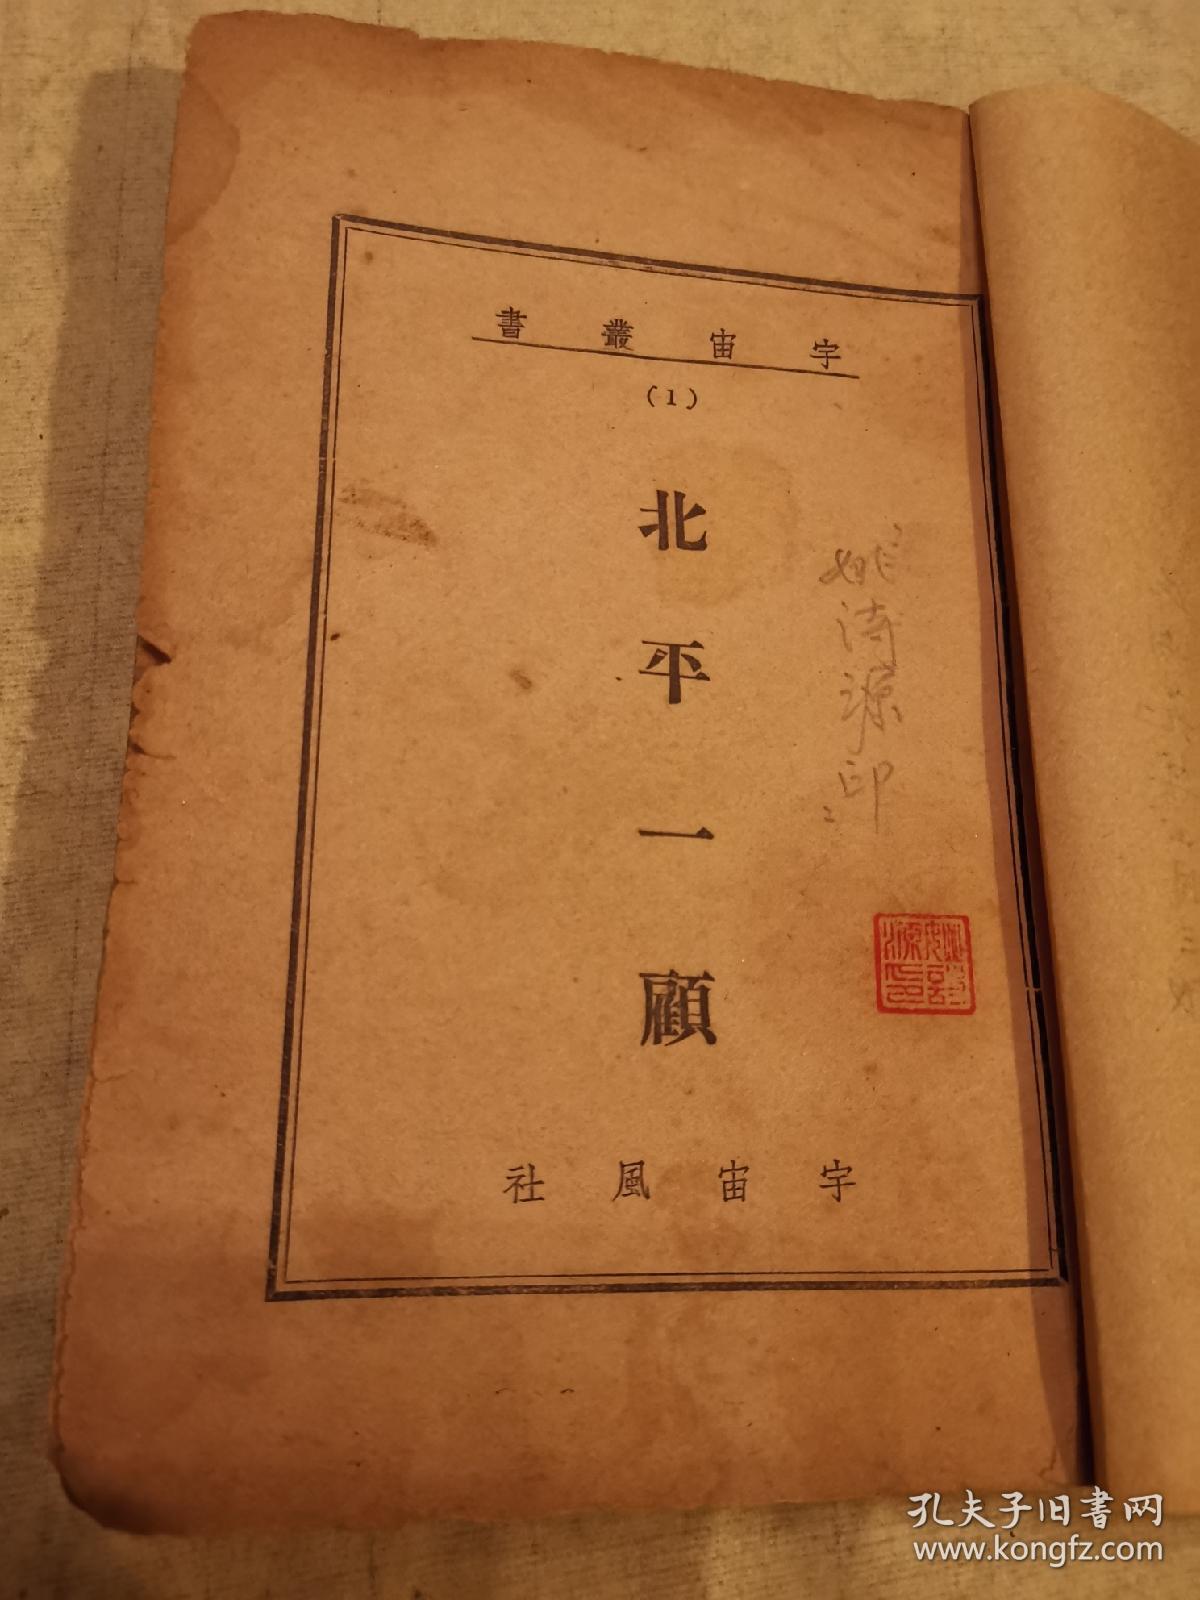 宇宙叢書
(1)
北平一顧
姚诗源印
姚詩源印
宇宙風社
孔夫子旧书网
www.kongfz.com